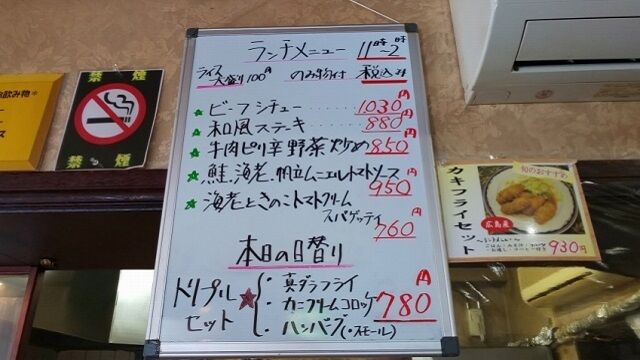 ランチメニュー 11時~2時
ライス大盛り100円 のみ物付 税込み
ビーフシチュー 1030円
和風ステーキ 880円
牛肉ピリ辛野菜炒め 850円
鮭、海老、帆立ムニエルトマトソース 950円
海老ときのこトマトクリーム
スパゲッティ 760円
本日の日替り
トリプルセット
・真ダラフライ
・カニクリームコロッケ
・ハンバーグ(・スモール)
780円
禁煙
禁煙
飲み物
旬のおすすめ
カキフライセット
広島産
930円